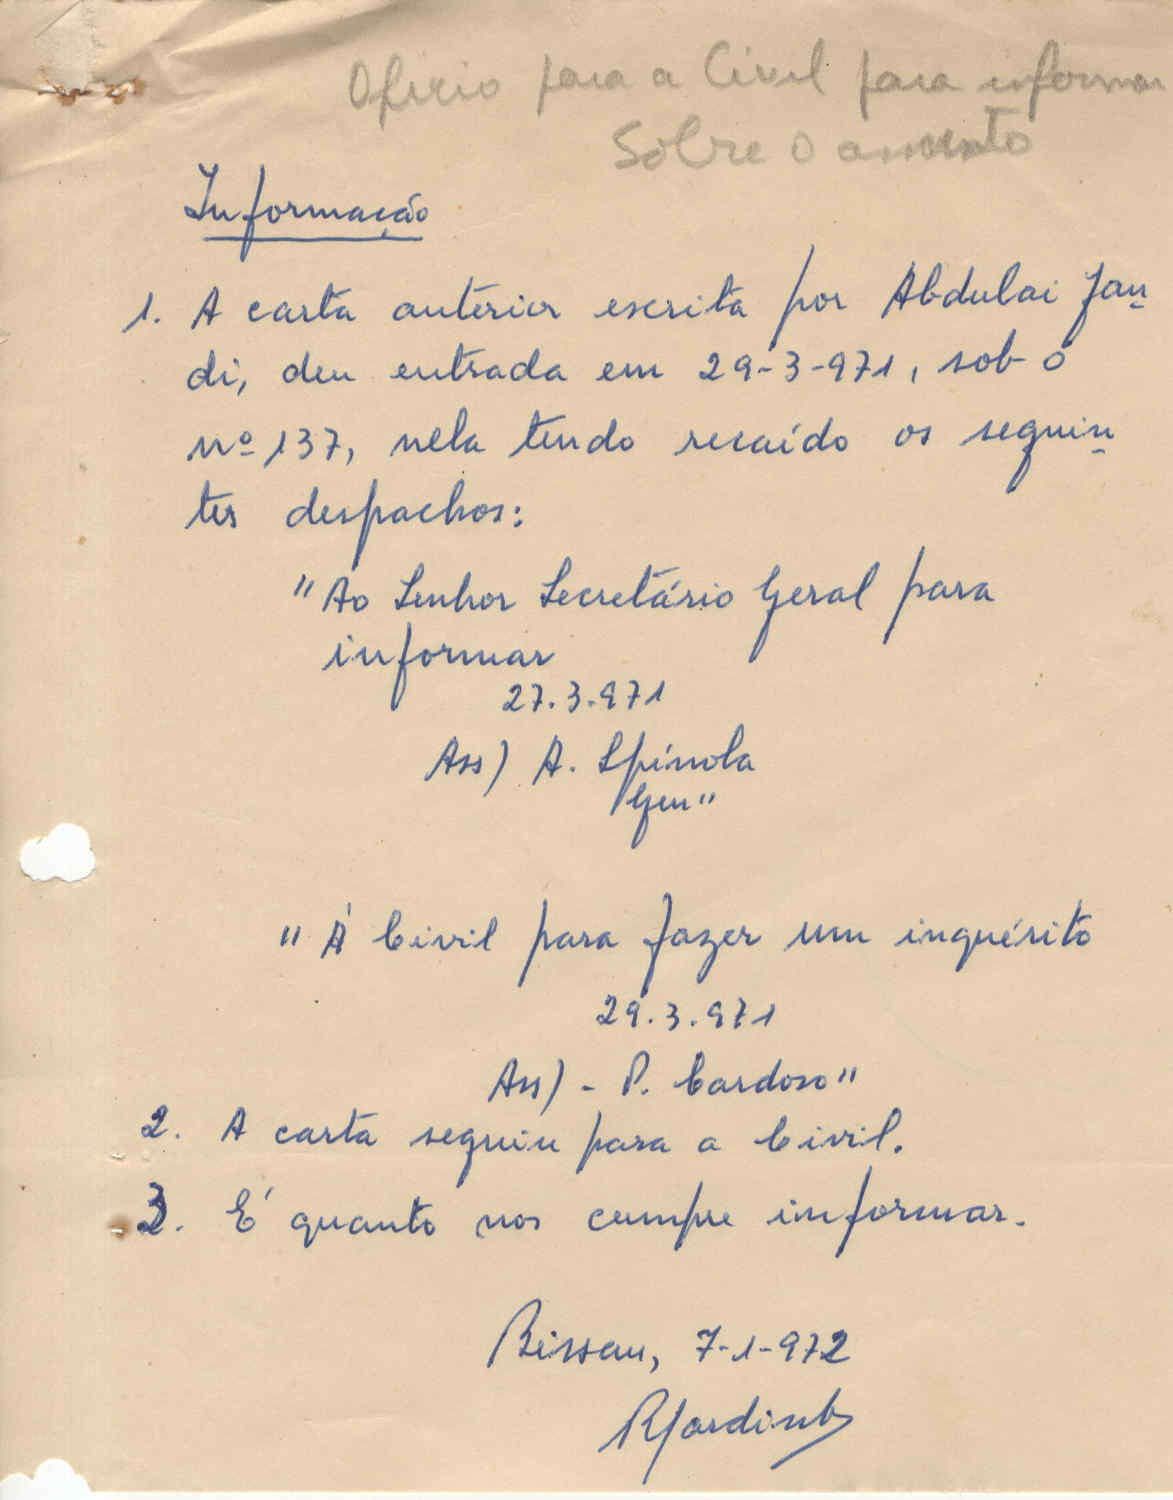 Oficio para a Civil para informar
Sobre o assunto
Informação
1. A carta anterior escrita por Abdulai Jan-
di, deu entrada em 29-3-971, sob o
nº 137, nela tendo recaído os seguin-
tes despachos:
"Ao Senhor Secretário Geral para
informar
27.3.971
Ass) A. Spínola
Gen"
"À Civil para fazer um inquérito
29.3.971
Ass) - P. Cardoso"
2. A carta seguiu para a Civil.
3. É quanto nos cumpre informar.
Bissau, 7-1-972